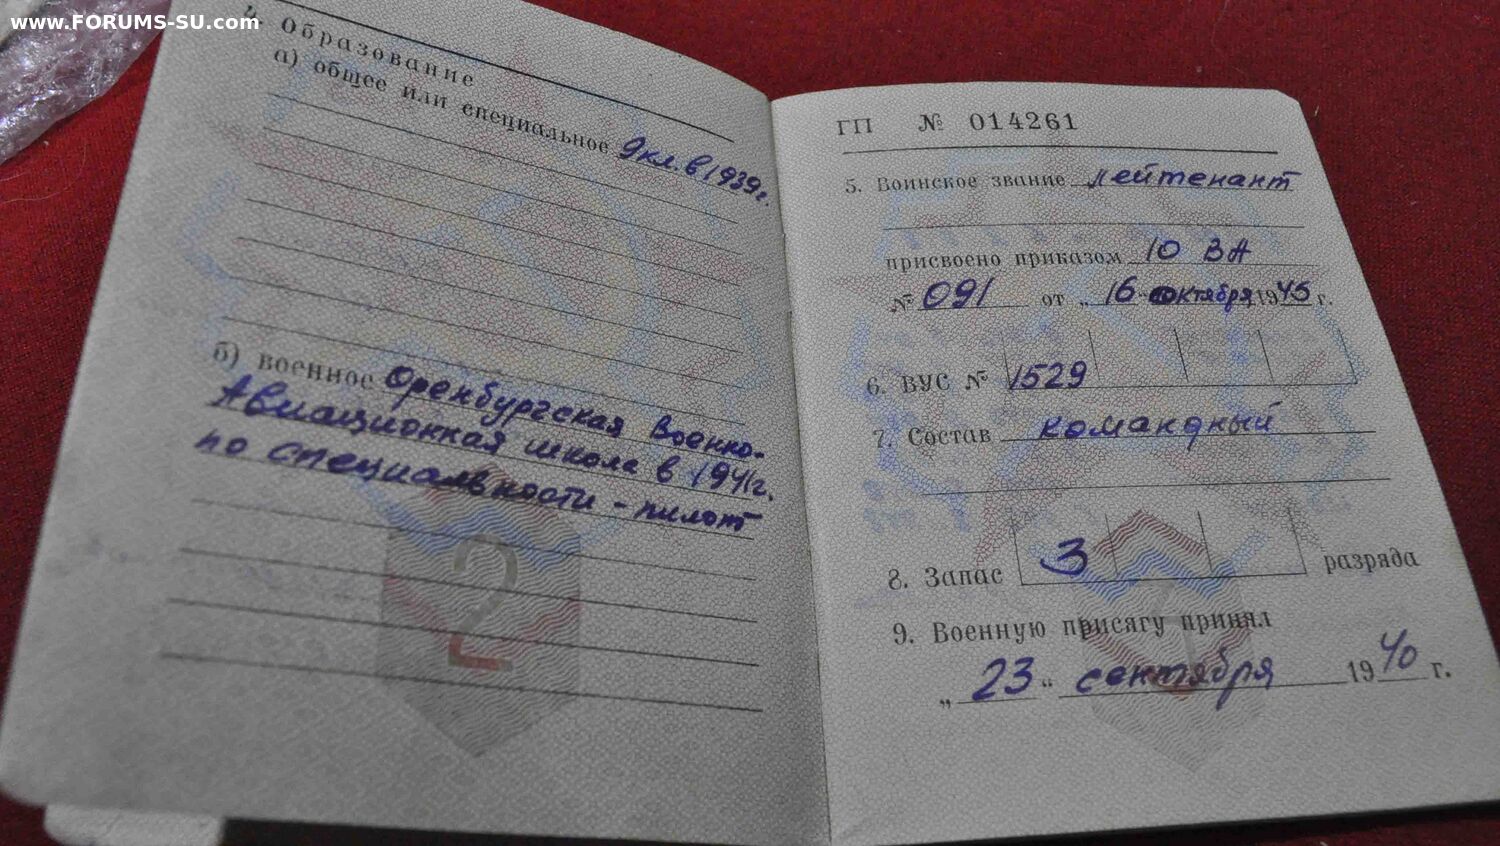 www.FORUMS-SU.com
4. Образование
а) общее или специальное 9 кл. в 1939 г.
б) военное Оренбургская Военно-
Авиационная школа в 1941 г.
по специальности - пилот
2
ГП № 014261
5. Воинское звание лейтенант
присвоено приказом 10 ВА
№ 091 от „16 октября 1945 г.
6. ВУС № 1529
7. Состав командный
8. Запас 3 разряда
9. Военную присягу принял
„23“ сентября 1940 г.
1